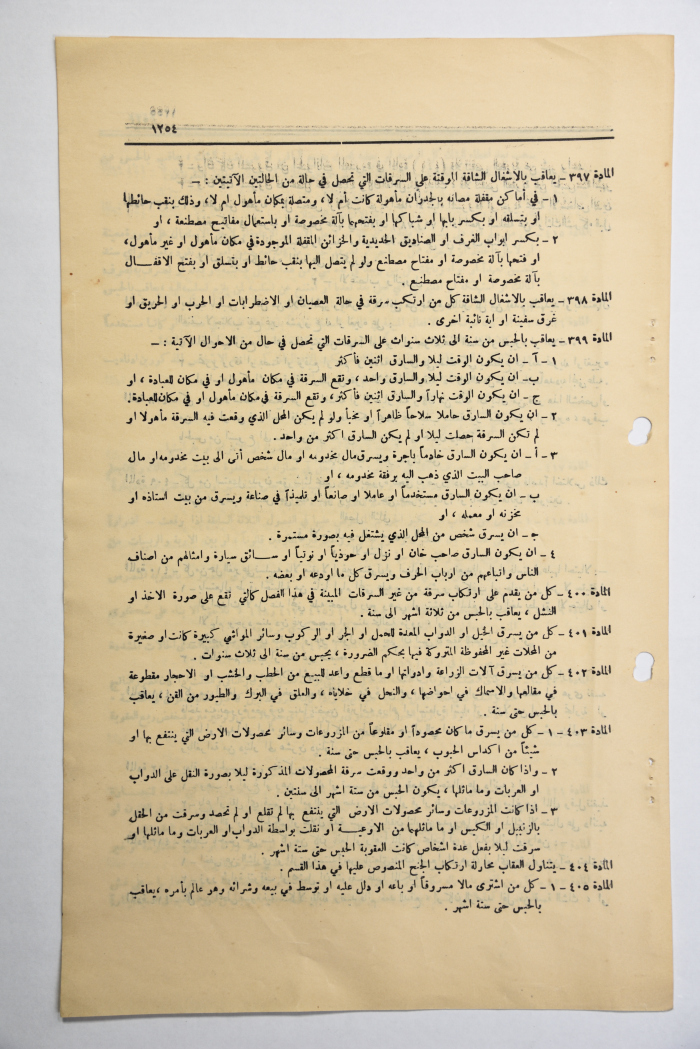 ١٢٥٤
المادة ٣٩٧ – يعاقب بالاشغال الشاقة الموقتة على السرقات التي تحصل في حالة من الحالتين الآتيتين : –
١ – في أماكن مقفلة مصانه بالجدران مأهولة كانت أم لا ، ومتصلة بمكان مأهول ام لا ، وذلك بنقب حائطها
او بتسلقه او بكسر بابها او شباكها او بفتحهما بآلة مخصوصة او باستعمال مفاتيح مصطنعة ، او
٢ – بكسر ابواب الغرف او الصناديق الحديدية والخزائن المقفلة الموجودة في مكان مأهول او غير مأهول ،
او فتحها بآلة مخصوصة او مفتاح مصطنع ولو لم يتصل اليها بنقب حائط او بتسلق او بفتح الاقفـال
بآلة مخصوصة او مفتاح مصطنع .
المادة ٣٩٨ – يعاقب بالاشغال الشاقة كل من ارتكب سرقة في حالة العصيان او الاضطرابات او الحرب او الحريق او
غرق سفينة او اية نائبة اخرى .
المادة ٣٩٩ – يعاقب بالحبس من سنة الى ثلاث سنوات على السرقات التي تحصل في حال من الاحوال الآتية : –
١ – آ – ان يكون الوقت ليلا والسارق اثنين فأكثر
ب – ان يكون الوقت ليلا والسارق واحد ، وتقع السرقة في مكان مأهول او في مكان للعبادة ، او
ج – ان يكون الوقت نهاراً والسارق اثنين فأكثر ، وتقع السرقة في مكان مأهول او في مكان للعبادة .
٢ – ان يكون السارق حاملا سلاحاً ظاهراً او مخبأ ولو لم يكن المحل الذي وقعت فيه السرقة مأهولا او
لم تكن السرقة حصلت ليلا او لم يكن السارق اكثر من واحد .
٣ – أ – ان يكون السارق خادماً باجرة ويسرق مال مخدومه او مال شخص أتى الى بيت مخدومه او مال
صاحب البيت الذي ذهب اليه برفقة مخدومه ، او
ب – ان يكون السارق مستخدماً او عاملا او صانعاً او تلميذاً في صناعة ويسرق من بيت استاذه او
مخزنه او معمله ، او
ج – ان يسرق شخص من المحل الذي يشتغل فيه بصورة مستمرة .
٤ – ان يكون السارق صاحب خان او نزل او حوذياً او نوتياً او سـائق سيارة وامثالهم من اصناف
الناس واتباعهم من ارباب الحرف ويسرق كل ما اودعه او بعضه .
المادة ٤٠٠ – كل من يقدم على ارتكاب سرقة من غير السرقات المبينة في هذا الفصل كالتي تقع على صورة الاخذ او
النشل ، يعاقب بالحبس من ثلاثة اشهر الى سنة .
المادة ٤٠١ – كل من يسرق الخيل او الدواب المعدة للحمل او الجر او الركوب وسائر المواشي كبيرة كانت او صغيرة
من المحلات غير المحفوظة المتروكة فيها بحكم الضرورة ، يحبس من سنة الى ثلاث سنوات .
المادة ٤٠٢ – كل من يسرق آلات الزراعة وادواتها او ما قطع واعد للبيع من الحطب والخشب او الاحجار مقطوعة
في مقالعها والاسماك في احواضها ، والنحل في خلاياه ، والعلق في البرك والطيور من القن ، يعاقب
بالحبس حتى سنة .
المادة ٤٠٣ – ١ – كل من يسرق ما كان محصوداً او مقلوعاً من المزروعات وسائر محصولات الارض التي ينتفع بها او
شيئاً من أكداس الحبوب ، يعاقب بالحبس حتى سنة .
٢ – واذا كان السارق اكثر من واحد ووقعت سرقة المحصولات المذكورة ليلا بصورة النقل على الدواب
او العربات وما ماثلها ، يكون الحبس من ستة اشهر الى سنتين .
٣ – اذا كانت المزروعات وسائر محصولات الارض التي ينتفع بها لم تقلع او لم تحصد وسرقت من الحقل
بالزنبيل او الكيس او ما ماثلهما من الاوعيـة او نقلت بواسطة الدواب او العربات وما ماثلها او
سرقت ليلا بفعل عدة اشخاص كانت العقوبة الحبس حتى ستة اشهر .
المادة ٤٠٤ – يتناول العقاب محاولة ارتكاب الجنح المنصوص عليها في هذا القسم .
المادة ٤٠٥ – ١ – كل من اشترى مالا مسروقاً او باعه او دلل عليه او توسط في بيعه وشرائه وهو عالم بأمره ، يعاقب
بالحبس حتى ستة اشهر .